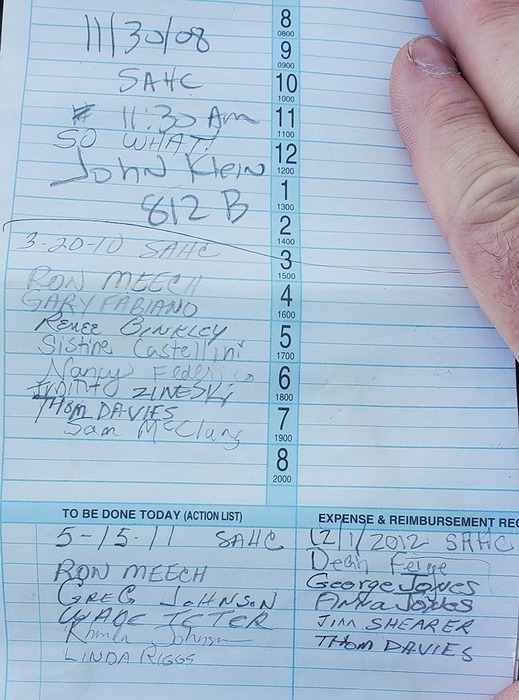 11/30/08
SAHC
11:30 Am
SO WHAT!
John Klein
812 B
3-20-10 SAHC
RON MEECH
GARY FABIANO
RENEE BINKLEY
Sistine Castellini
Nancy Federico
ZINESKY
THOM DAVIES
Sam McClung
8
0800
9
0900
10
1000
11
1100
12
1200
1
1300
2
1400
3
1500
4
1600
5
1700
6
1800
7
1900
8
2000
TO BE DONE TODAY (ACTION LIST)
5-15-11 SAHC
RON MEECH
GREG JOHNSON
WADE
Rhonda Johnson
LINDA RIGGS
EXPENSE & REIMBURSEMENT REC
12/1/2012 SAHC
Dean Feige
George Jones
Anna Jones
JIM SHEARER
THOM DAVIES